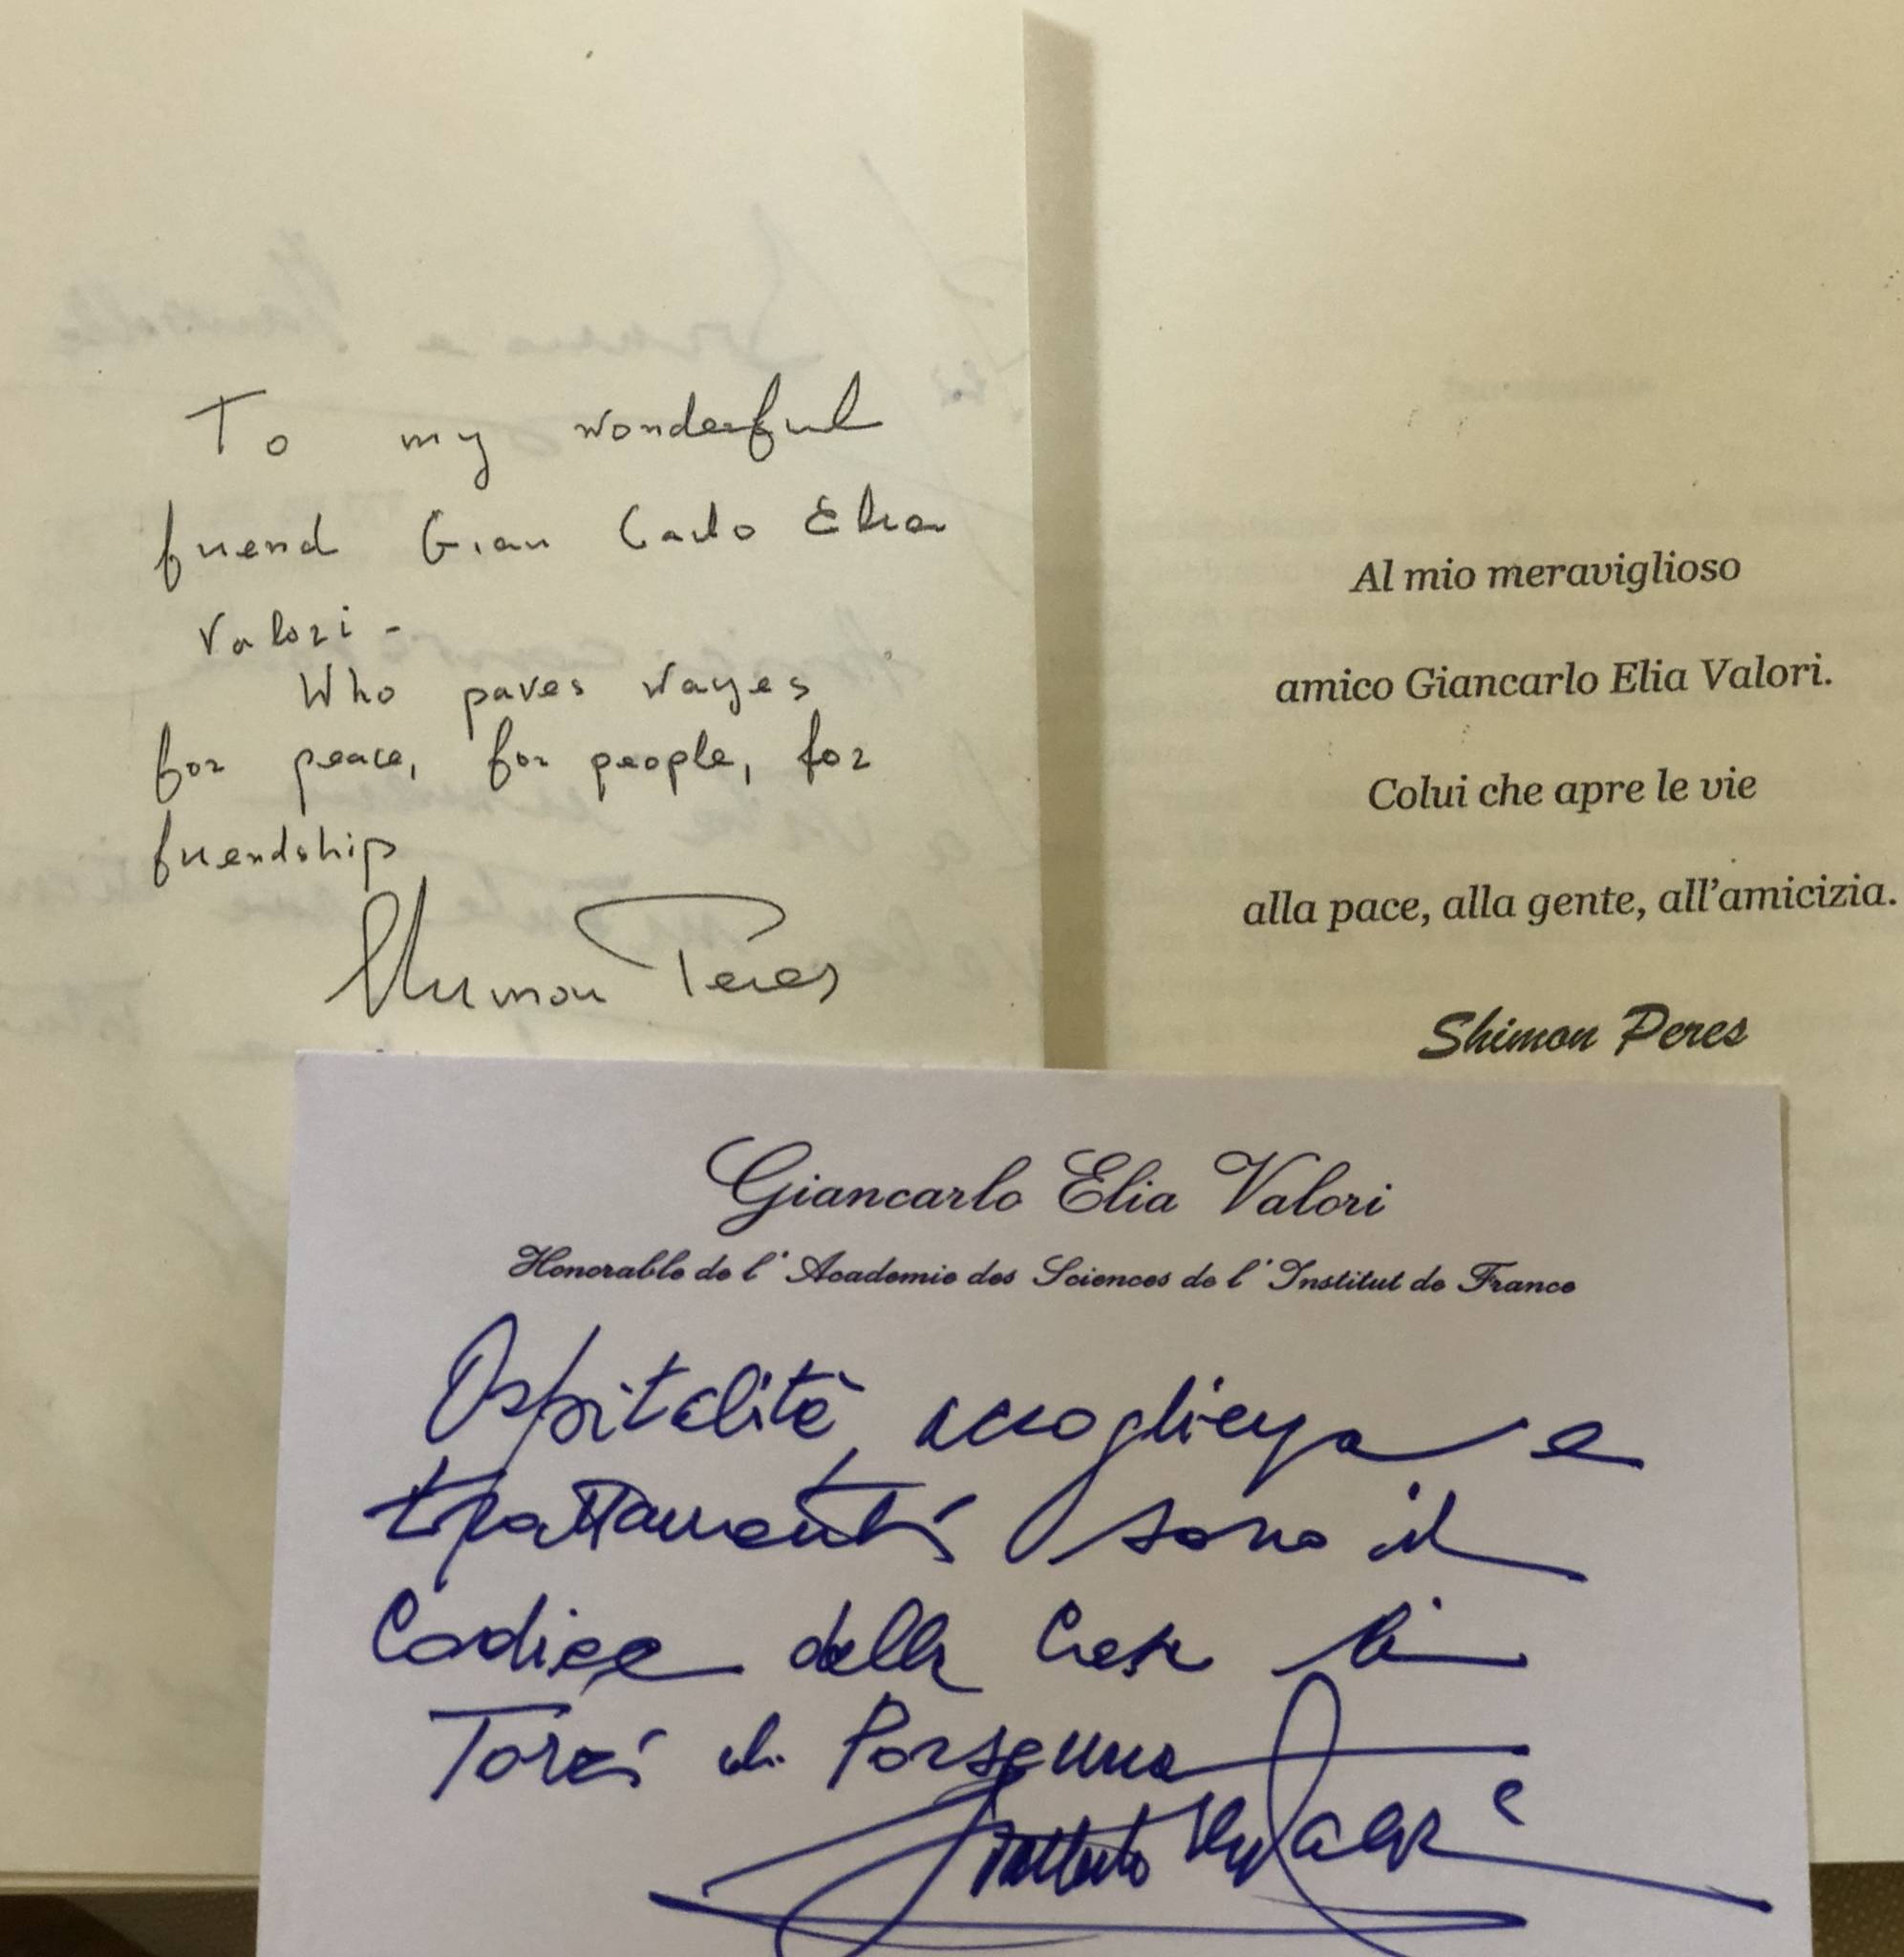 To my wonderful
friend Gian Carlo Elia
Valori -
Who paves wayes
for peace, for people, for
friendship
Shimon Peres
Al mio meraviglioso
amico Giancarlo Elia Valori.
Colui che apre le vie
alla pace, alla gente, all'amicizia.
Shimon Peres
Giancarlo Elia Valori
Honorable de l'Academie des Sciences de l'Institut de France
Ospitalità, accoglienza e
trattamenti sono il
Codice della Casa
Torri di Porsenna